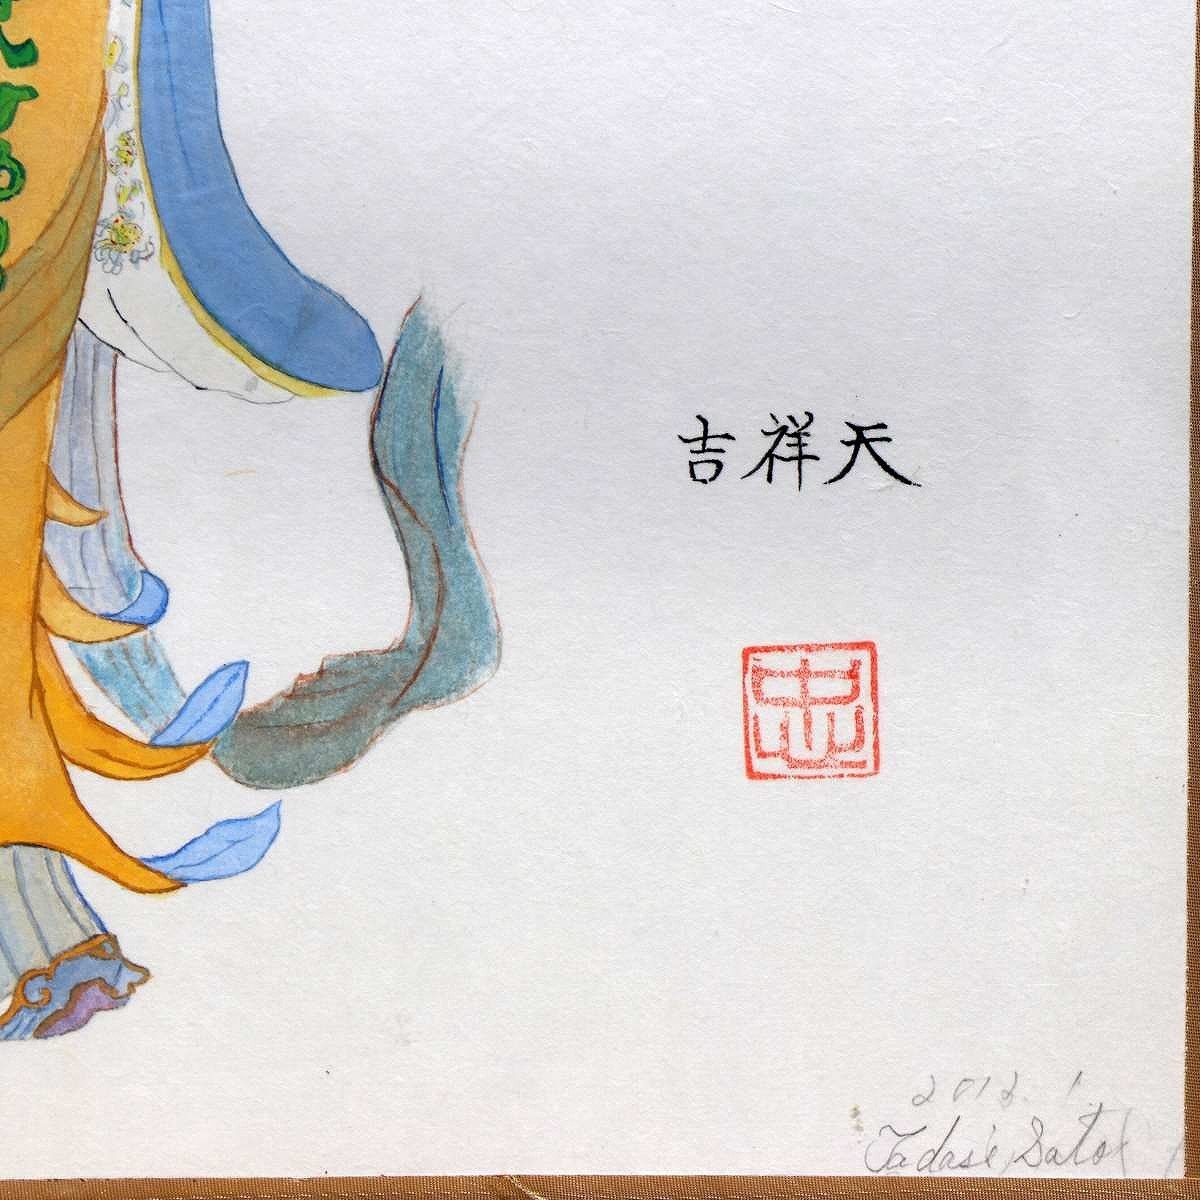 吉祥天
忠
2012. 1
Tadasi Sato